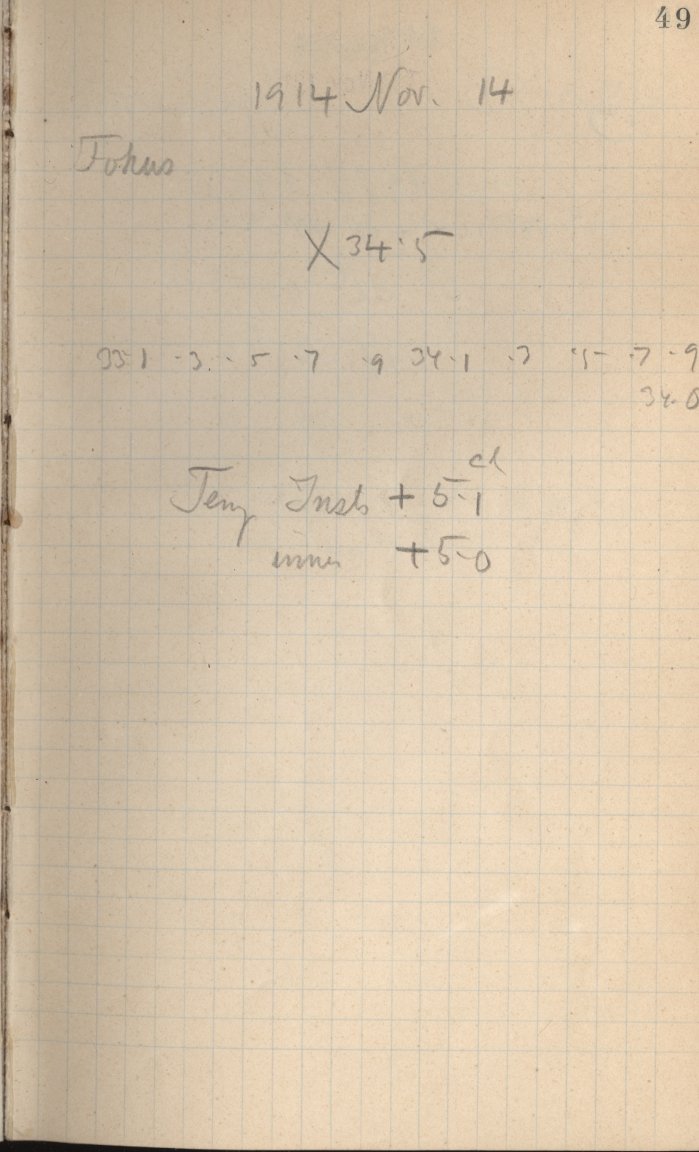 49
1914 Nov. 14
Fokus
X 34.5
33.1 .3 .5 .7 .9 34.1 .3 .5 .7 .9
34.0
cl
Temp Inst + 5.1
inner + 5.0